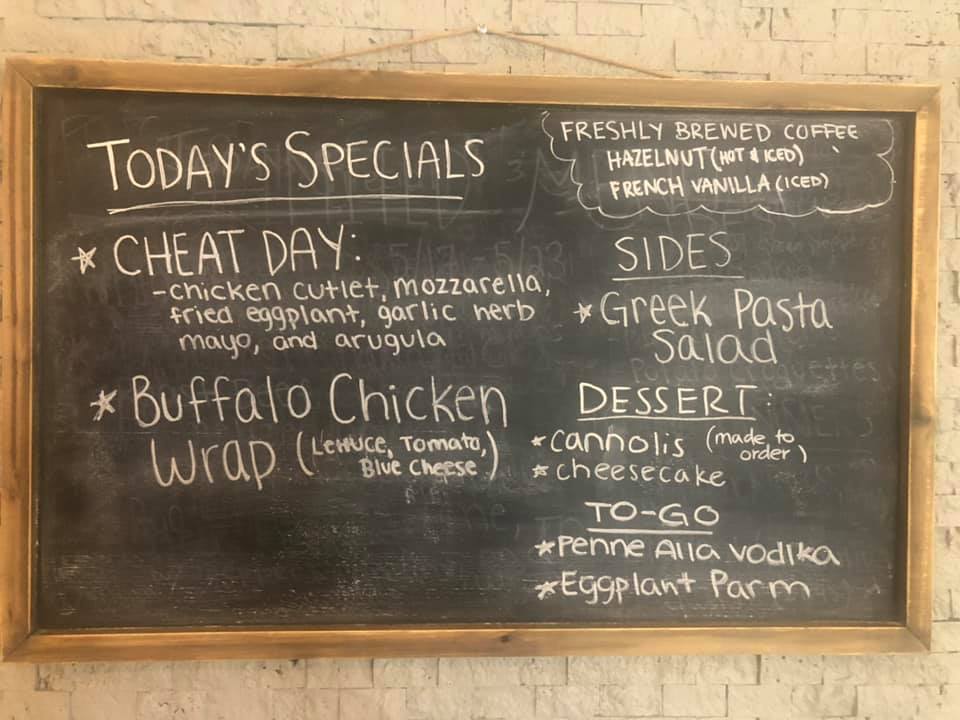 TODAY'S SPECIALS
* CHEAT DAY:
-chicken cutlet, mozzarella,
fried eggplant, garlic herb
mayo, and arugula
* Buffalo Chicken
Wrap (Lettuce, Tomato,
Blue Cheese)
FRESHLY BREWED COFFEE
HAZELNUT (HOT & ICED)
FRENCH VANILLA (ICED)
SIDES
* Greek Pasta
Salad
DESSERT:
* cannolis (made to
order)
* cheesecake
TO-GO
* Penne Alla Vodika
* Eggplant Parm
5/17 - 5/23